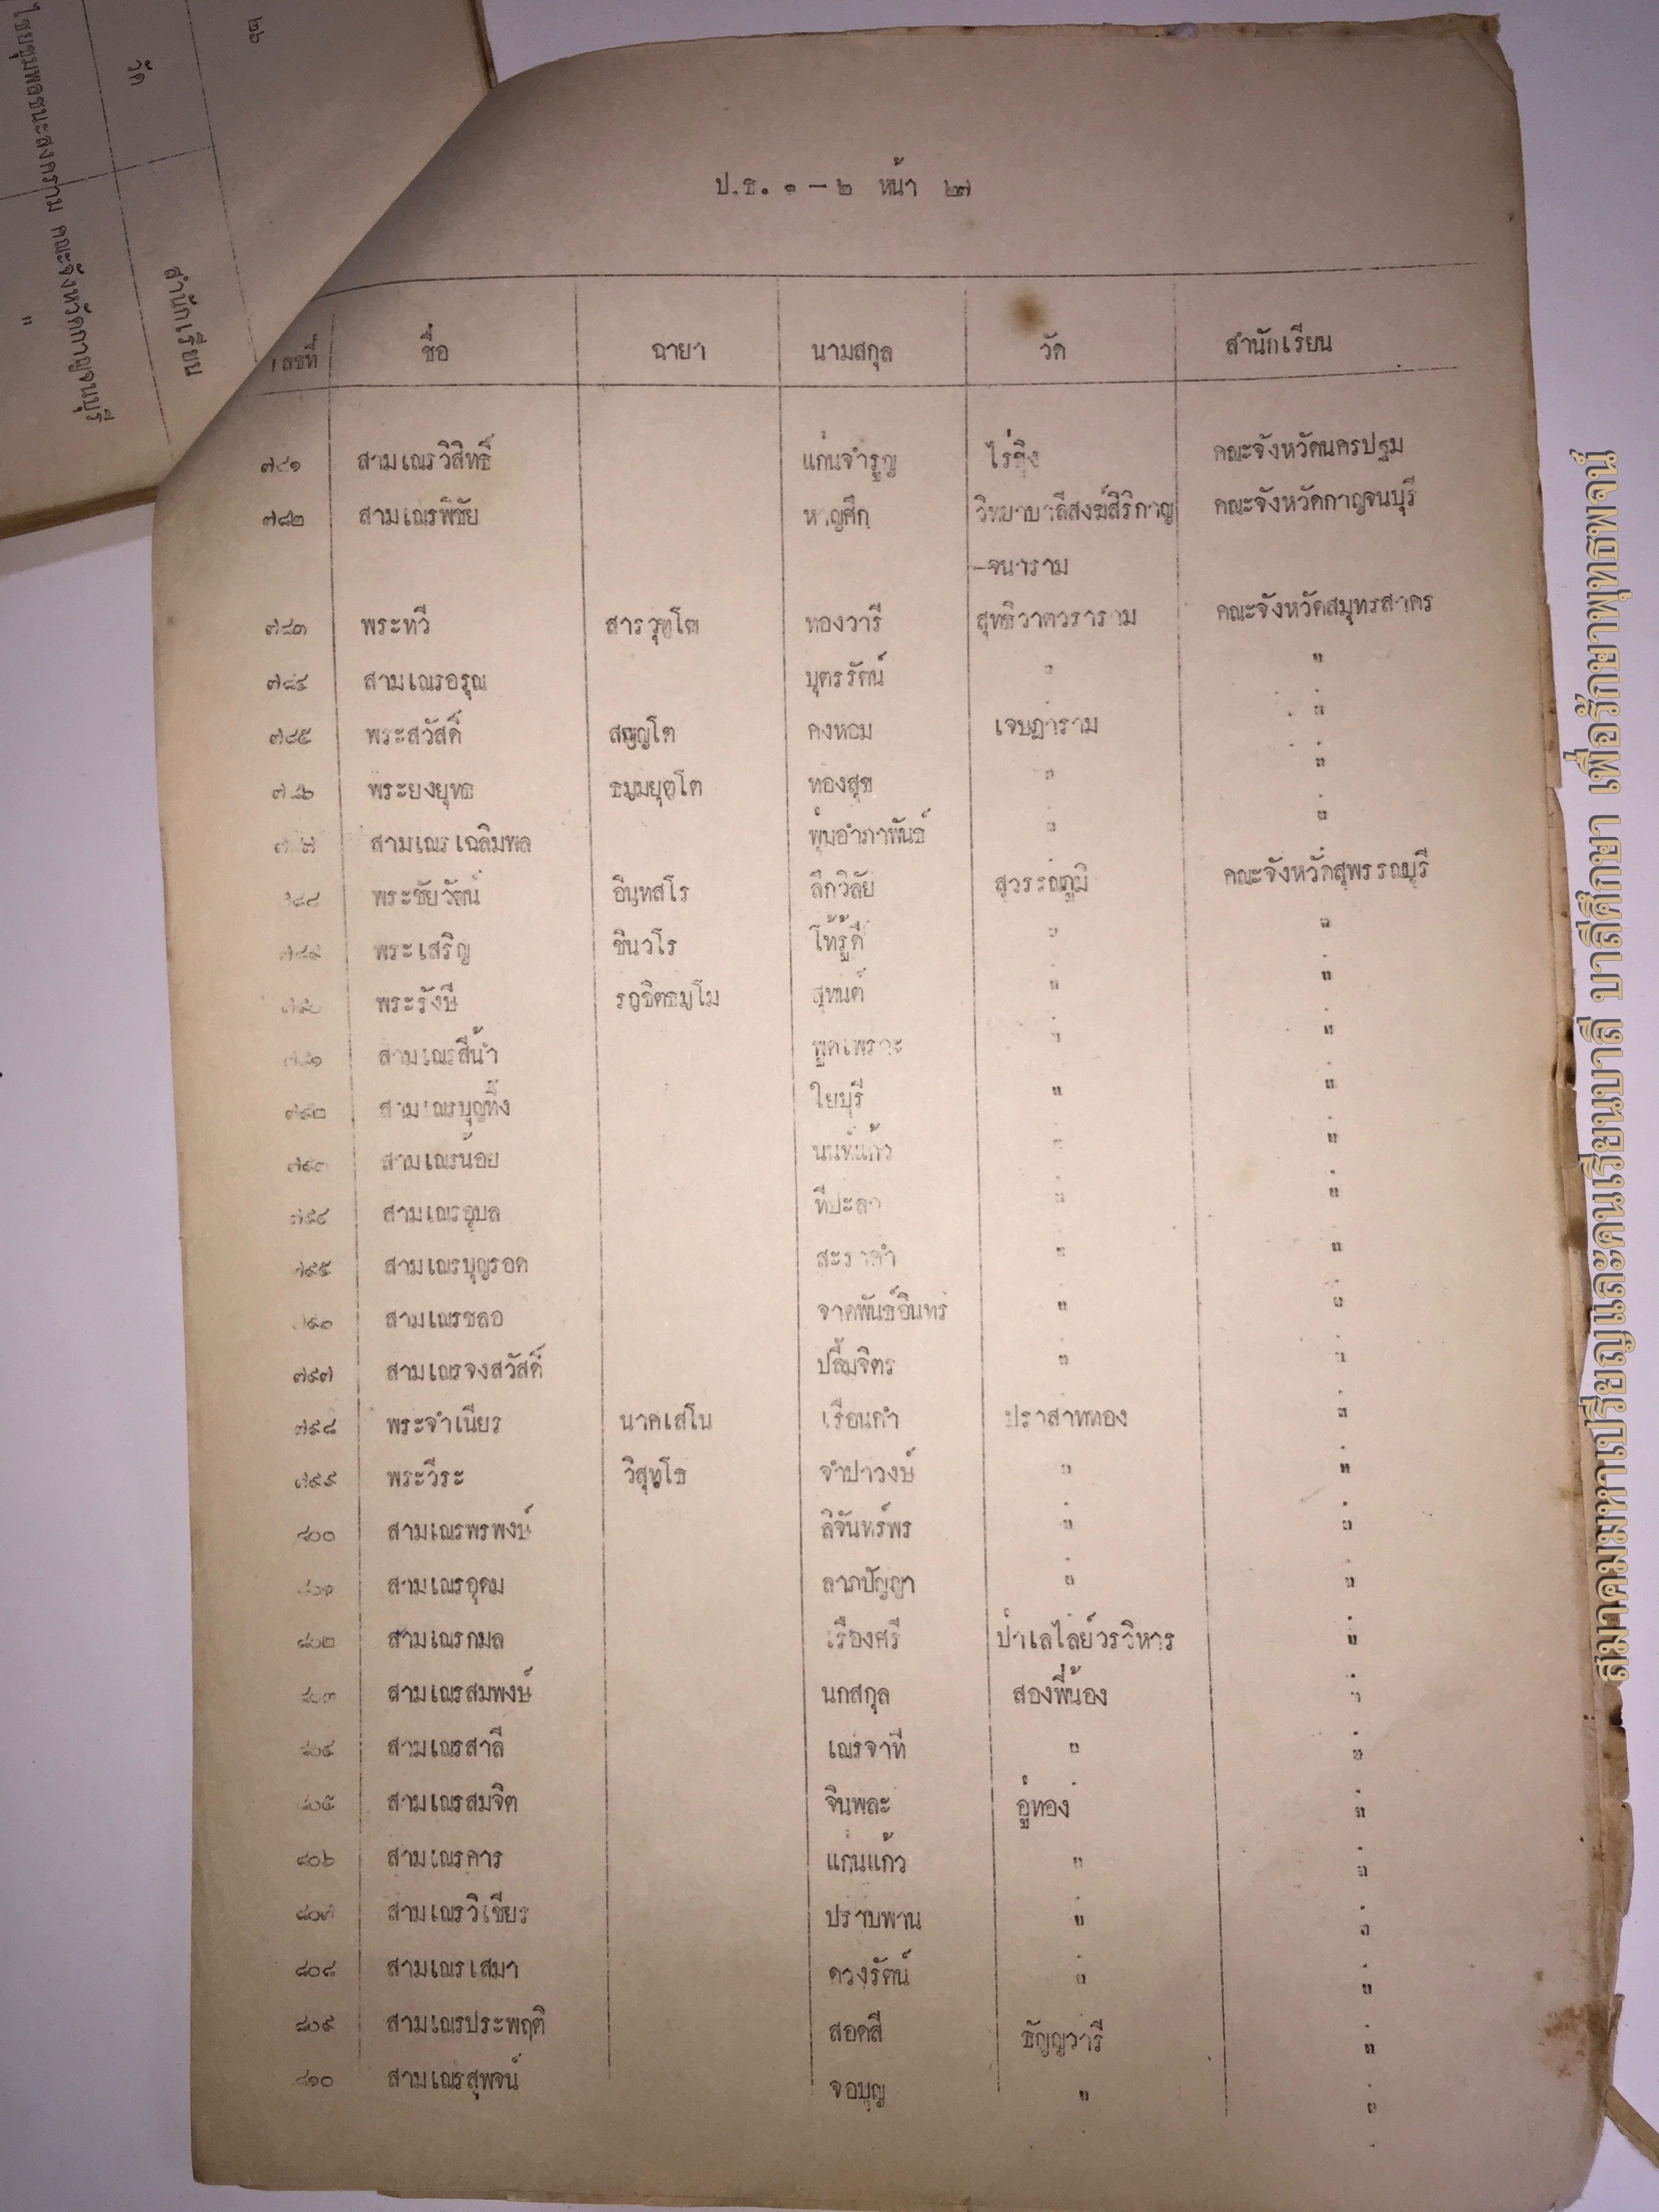 ๒๖
วัด
สำนักเรียน
ไชยชุมพลชนะสงคราม คณะจังหวัดกาญจนบุรี
"
ป.ธ. ๑ - ๒ หน้า ๒๗
เลขที่ ชื่อ ฉายา นามสกุล วัด สำนักเรียน
๗๘๑ สามเณรวิสิทธิ์ แก่นจำรูญ ไร่ขิง คณะจังหวัดนครปฐม
๗๘๒ สามเณรพิชัย หาญศึก วิทยาบาลีสงฆ์สิริกาญ คณะจังหวัดกาญจนบุรี
-จนาราม
๗๘๓ พระทวี สารวุฑฺโฒ ทองวารี สุทธิวาตวราราม คณะจังหวัดสมุทรสาคร
๗๘๔ สามเณรอรุณ บุตรรัตน์ " "
๗๘๕ พระสวัสดิ์ สญฺญโต คงหอม เจษฎาราม "
๗๘๖ พระยงยุทธ ธมฺมยุตฺโต ทองสุข " "
๗๘๗ สามเณรเฉลิมพล พุ่มอำภาพันธ์ " "
๗๘๘ พระชัยวัฒน์ อินฺทสโร ลึกวิลัย สุวรรณภูมิ คณะจังหวัดสุพรรณบุรี
๗๘๙ พระเสริญ ชินวโร โท้รู้ดี " "
๗๙๐ พระรังษี รกฺขิตธมฺโม สุทนต์ " "
๗๙๑ สามเณรสีน้ำ พูดเพราะ " "
๗๙๒ สามเณรบุญทิ้ง ใยบุรี " "
๗๙๓ สามเณรน้อย นนท์แก้ว " "
๗๙๔ สามเณรอุบล ทีปะลา " "
๗๙๕ สามเณรบุญรอด สะราคำ " "
๗๙๖ สามเณรชลอ จาดพันธ์อินทร์ " "
๗๙๗ สามเณรจงสวัสดิ์ ปลื้มจิตร " "
๗๙๘ พระจำเนียร นาคเสโน เรือนคำ ปราสาททอง "
๗๙๙ พระวีระ วิสุทฺโธ จำปาวงษ์ " "
๘๐๐ สามเณรพรพงษ์ ลิจันทร์พร " "
๘๐๑ สามเณรอุดม ลาภปัญญา " "
๘๐๒ สามเณรกมล เรืองศรี ป่าเลไลย์วรวิหาร "
๘๐๓ สามเณรสมพงษ์ นกสกุล สองพี่น้อง "
๘๐๔ สามเณรสาลี เณรจาที " "
๘๐๕ สามเณรสมจิต จินพละ อู่ทอง "
๘๐๖ สามเณรคาร แก่นแก้ว " "
๘๐๗ สามเณรวิเชียร ปราบพาน " "
๘๐๘ สามเณรเสมา ดวงรัตน์ " "
๘๐๙ สามเณรประพฤติ สอดสี ธัญญวารี "
๘๑๐ สามเณรสุพจน์ จอบุญ " "
สมาคมมหาเปรียญและคนเรียนบาลี บาลีศึกษา เพื่อรักษาพุทธพจน์